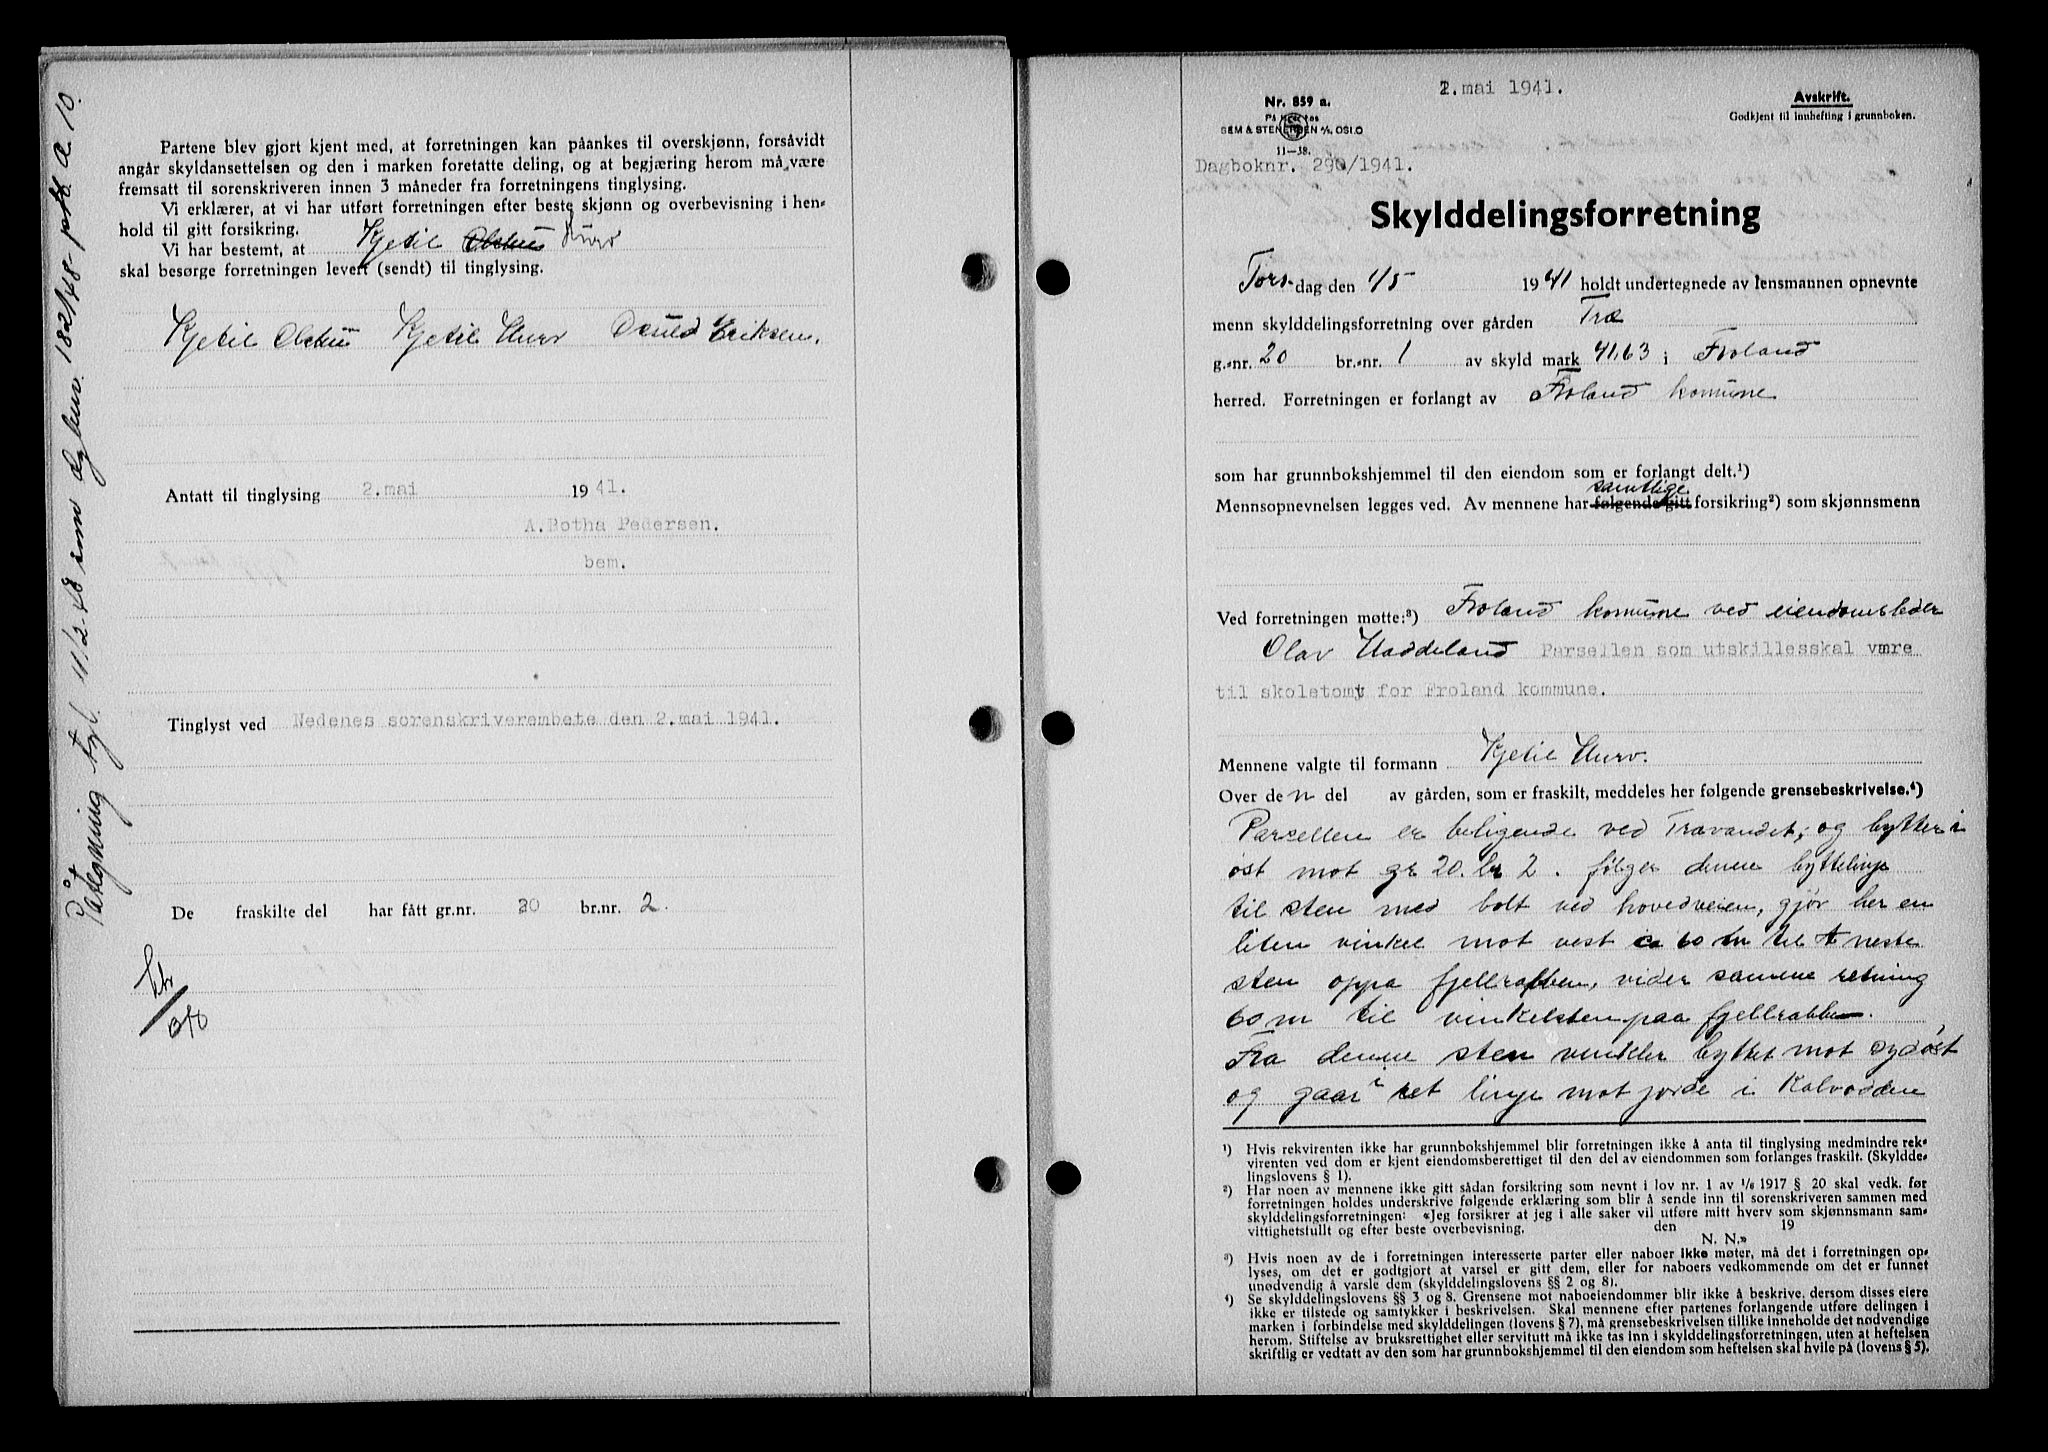 Partene blev gjort kjent med, at forretningen kan påankes til overskjønn, forsåvidt
angår skyldansettelsen og den i marken foretatte deling, og at begjæring herom må være
fremsatt til sorenskriveren innen 3 måneder fra forretningens tinglysing.
Vi erklærer, at vi har utført forretningen efter beste skjønn og overbevisning i hen-
hold til gitt forsikring.
Vi har bestemt, at Kjetil Olstuu Hurv
skal besørge forretningen levert (sendt) til tinglysing.
Kjetil Olstuu Kjetil Hurv Eriksen.
Antatt til tinglysing 2.mai 1941.
A.Botha Pedersen.
bem.
Tinglyst ved Nedenes sorenskriverembete den 2.mai 1941.
De fraskilte del har fått gr.nr. 20 br.nr. 2.
Påtegning tgl. 11/2-48 som dagbnr. 182/48
2. mai 1941.
Nr. 859 a.
SEM & STENERSEN A/S, OSLO
11-38.
Avskrift.
Godkjent til innhefting i grunnboken.
Dagboknr. 290/1941.
Skylddelingsforretning
Torsdag den 1/5 1941 holdt undertegnede av lensmannen opnevnte
menn skylddelingsforretning over gården Træ
g.-nr. 20 br.-nr. 1 av skyld mark 41,63 i Froland
herred. Forretningen er forlangt av Froland komune
som har grunnbokshjemmel til den eiendom som er forlangt delt.¹)
samtlige
Mennsopnevnelsen legges ved. Av mennene har følgende gitt forsikring²) som skjønnsmenn
Ved forretningen møtte:³) Froland komune ved eiendomsleder
Olav Haddeland Parsellen som utskillesskal være
til skoletomt for Froland kommune.
Mennene valgte til formann Kjetil Hurv.
Over den del av gården, som er fraskilt, meddeles her følgende grensebeskrivelse.⁴)
Parsellen er beligende ved Trævandet, og bytter i
øst mot gr 20. br 2. følger denne byttelinje
til sten med bolt ved hovedveien, gjør her en
liten vinkel mot vest ca 60 m til neste
sten oppa fjellrabben, vider samme retning
60 m til vinkelsten paa fjellrabben.
Fra denne sten vinkler byttet mot sydøst
og gaar i ret linje mot jorde i Kalvodden
¹) Hvis rekvirenten ikke har grunnbokshjemmel blir forretningen ikke å anta til tinglysing medmindre rek-
virenten ved dom er kjent eiendomsberettiget til den del av eiendommen som forlanges fraskilt. (Skyldde-
lingslovens § 1).
²) Har noen av mennene ikke gitt sådan forsikring som nevnt i lov nr. 1 av 1/6 1917 § 20 skal vedk. før
forretningen holdes underskrive følgende erklæring som blir å sende inn til sorenskriveren sammen med
skylddelingsforretningen: «Jeg forsikrer at jeg i alle saker vil utføre mitt hverv som skjønnsmann sam-
vittighetsfullt og efter beste overbevisning. den 19
N. N.»
³) Hvis noen av de i forretningen interesserte parter eller naboer ikke møter, må det i forretningen op-
lyses, om det er godtgjort at varsel er gitt dem, eller for naboers vedkommende om det er funnet
unødvendig å varsle dem (skylddelingslovens §§ 2 og 8).
⁴) Se skylddelingslovens §§ 3 og 8. Grensene mot naboeiendommer blir ikke å beskrive, dersom disses eiere
ikke er tilstede og samtykker i beskrivelsen. Skal mennene efter partenes forlangende utføre delingen i
marken i forbindelse med skylddelingen (lovens § 7), må grensebeskrivelsen tillike inneholde det nødvendige
herom. Stiftelse av bruksrettighet eller servitutt må ikke tas inn i skylddelingsforretningen, uten at heftelsen
skriftlig er vedtatt av den som har grunnbokshjemmel til den eiendom som heftelsen skal hvile på (lovens § 5).